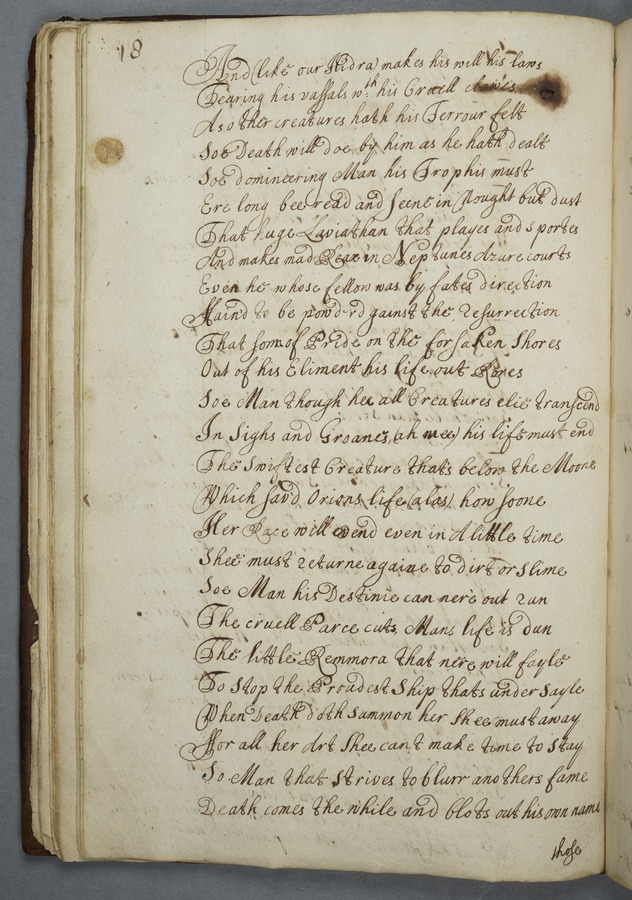 18
And (like our Hidra) makes his will his laws
Tearing his vassals wth his Cruell clawes
As other creatures hath his Terrour felt
Soe Death will doe by him as he hath dealt
Soe domineering Man his Trophis must
Ere long bee read and seene in Nought but dust
That huge Laviathan that playes and sportes
And makes mad Reax in Neptunes Azure courts
Even he whose fellow was by fates direction
Slaind to be powd-rd gainst the resurrection
That son of Pride on the forsaken Shores
Out of his Eliment his life out Rores
Soe Man though hee all Creatures elce transcend
In Sighs and Groanes, (ah mee) his life must end
The Swiftest Creature thats below the Moone
Which sav'd Orions life (alas) how soone
Her Race will end even in A little time
Shee must returne againe to dirt or slime
Soe Man his Destinie can nere out run
The cruell Parce cuts, Mans life is dun
The little Remmora that nere will fayle
To Stop the Proudest Ship thats under sayle
When Death doth summon her shee must away
For all her Art shee can't make time to stay
So Man that strives to blurr anothers fame
Death comes the while and blots out his own name
those